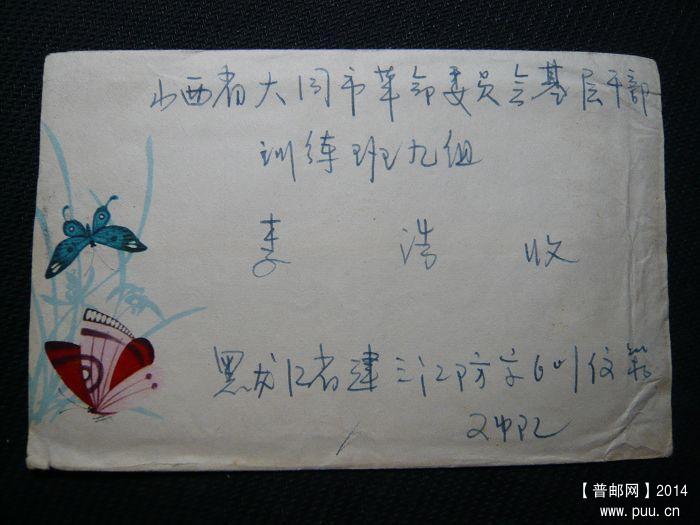 山西省大同市革命委员会基层干部
训练班九组
李 浩 收
黑龙江省建三江防字601信箱
【普邮网】2014
www.puu.cn